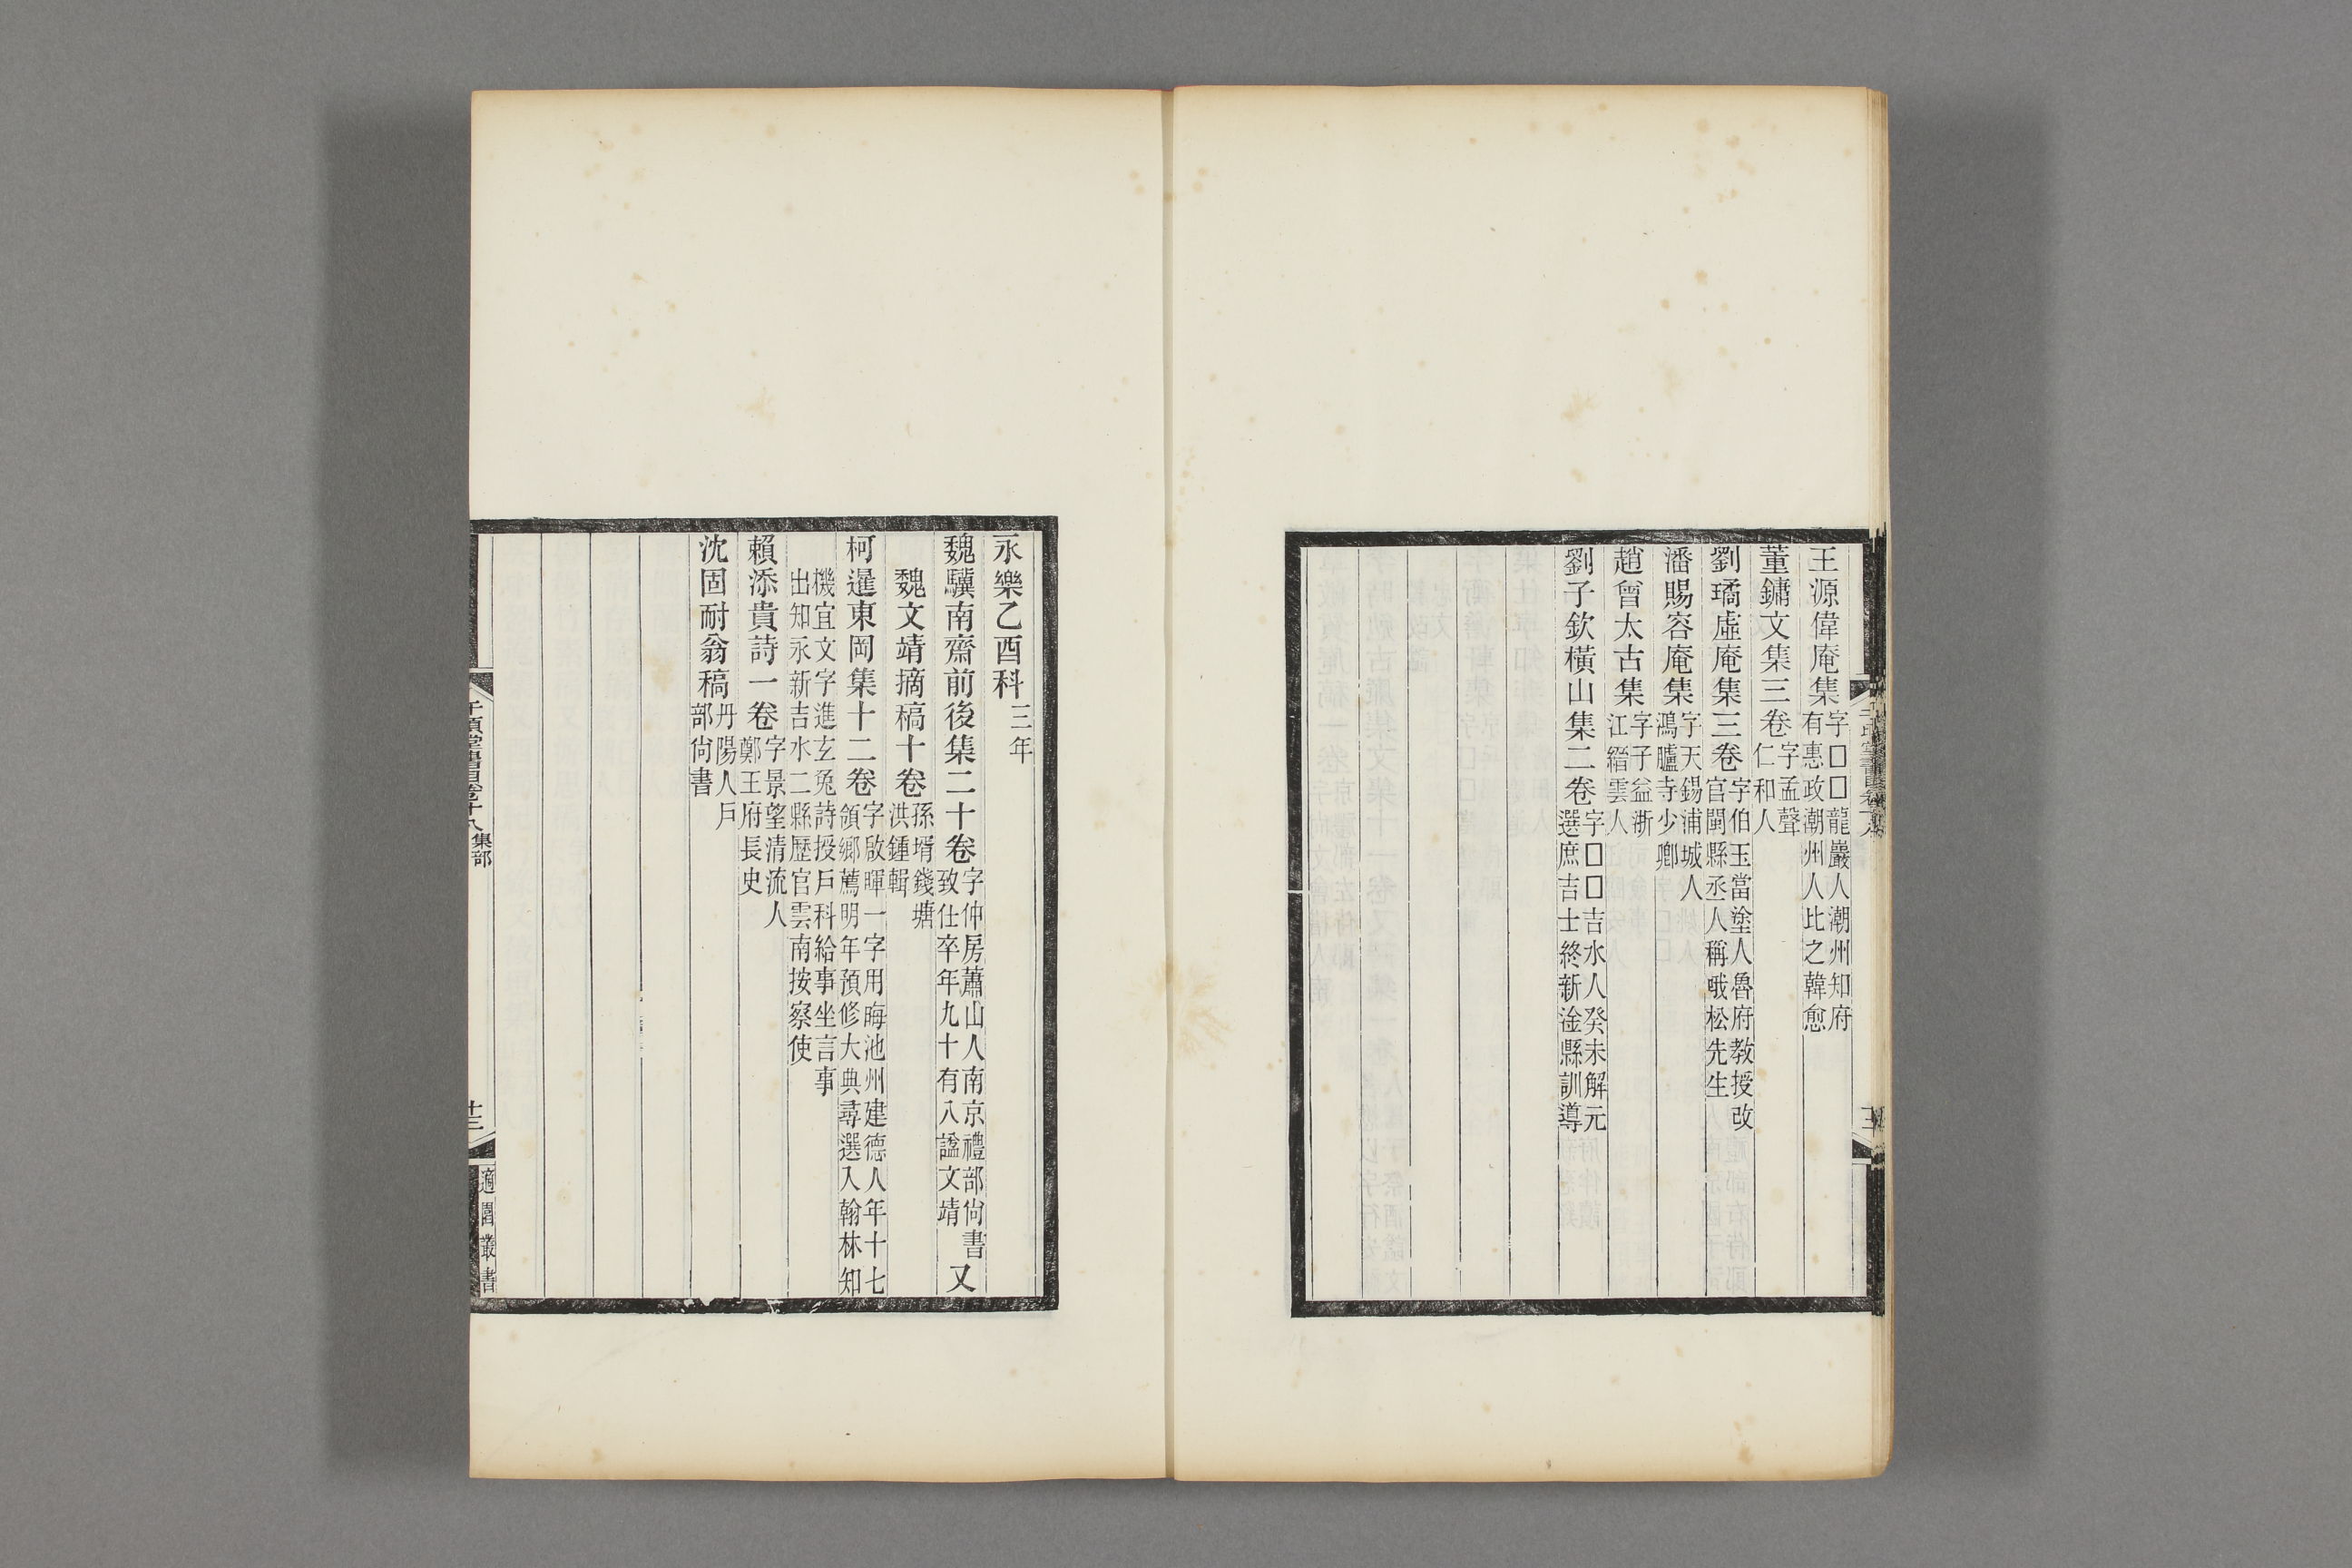 王源偉庵集字□□龍巖人潮州知府有惠政潮州人比之韓愈
董鏞文集三卷字孟聲仁和人
劉璚虛庵集三卷字伯玉當塗人魯府教授改官閩縣丞人稱哦松先生
潘賜容庵集字天錫浦城人鴻臚寺少卿
趙曾太古集字子益浙江縉雲人
劉子欽橫山集二卷字□□吉水人癸未解元選庶吉士終新淦縣訓導
永樂乙酉科三年
魏驥南齋前後集二十卷字仲房蕭山人南京禮部尚書致仕卒年九十有八謚文靖又
魏文靖摘稿十卷孫壻錢塘洪鍾輯
柯暹東岡集十二卷字啟暉一字用晦池州建德人年十七領鄉薦明年預修大典尋選入翰林知
機宜文字進玄兔詩授戶科給事坐言事出知永新吉水二縣歷官雲南按察使
賴添貴詩一卷字景望清流人鄭王府長史
沈固耐翁稿丹陽人戶部尚書
千頃堂書目卷十八集部
十三
適園叢書